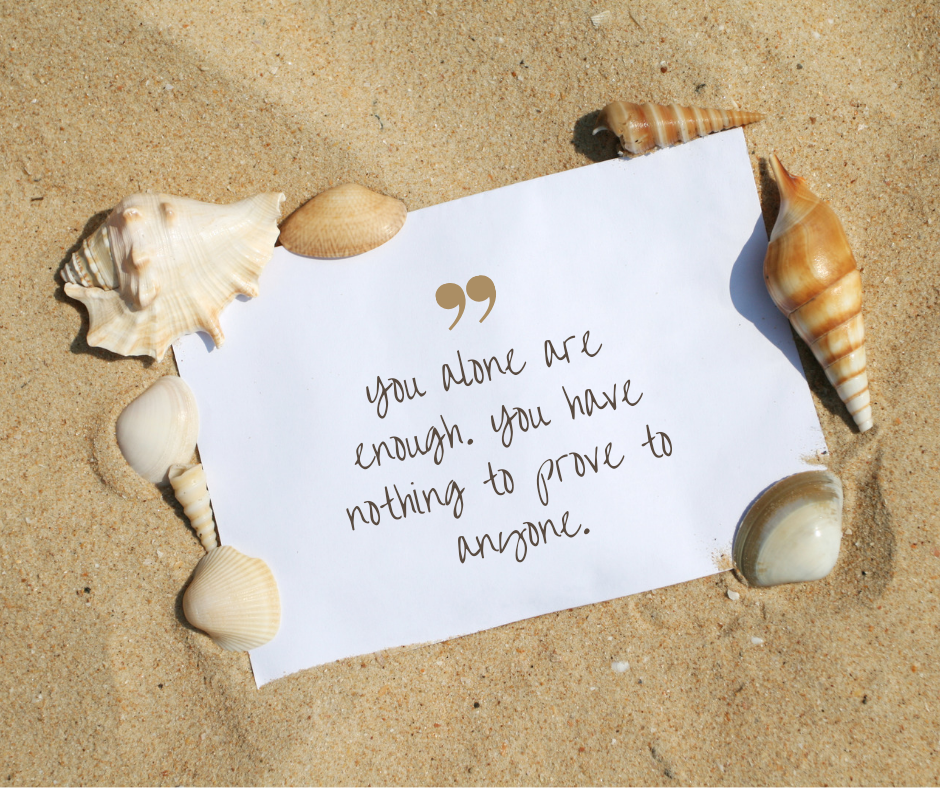 ”
you alone are
enough. you have
nothing to prove to
anyone.